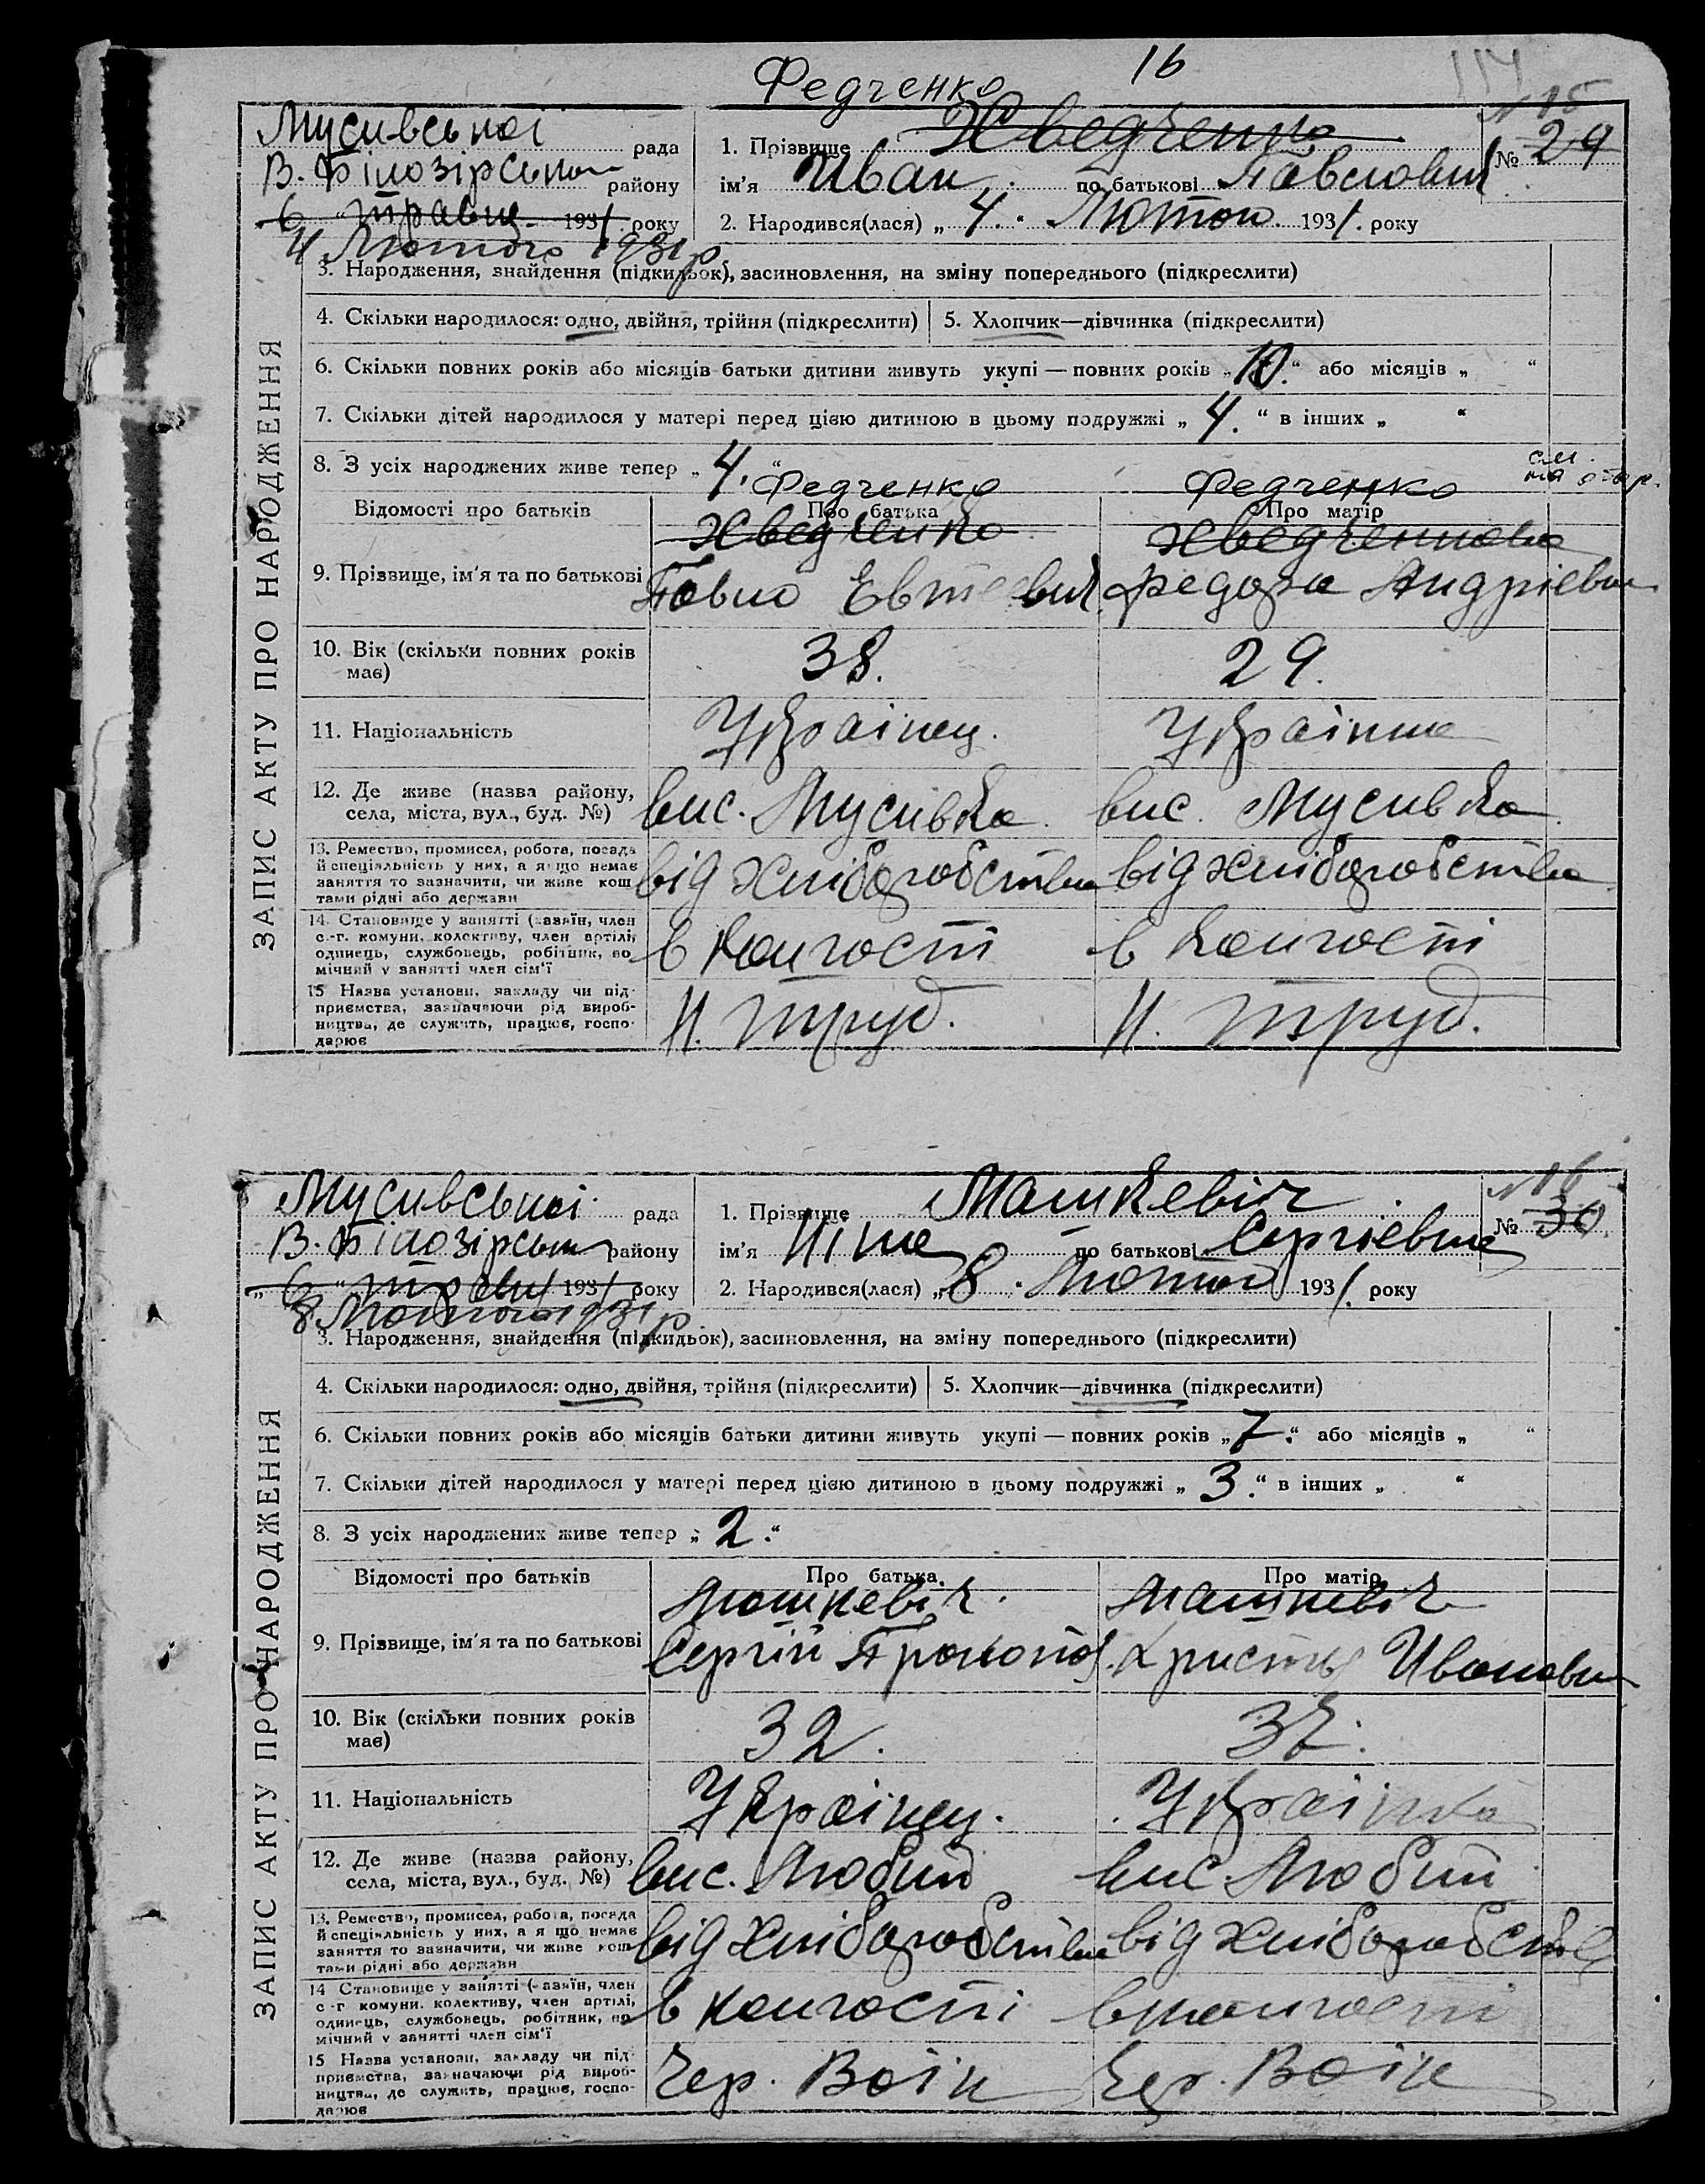 16
Федченко
Мусивської рада
В. Білозірськ району
6 травня 1931 року
4 Лютого 1931 р.
1. Прізвище Хведченко
№ 15
№ 29
ім'я Иван по батькові Павлович
2. Народився(лася) „ 4. " Лютого 1931. року
ЗАПИС АКТУ ПРО НАРОДЖЕННЯ
3. Народження, знайдення (підкидьок), засиновлення, на зміну попереднього (підкреслити)
4. Скільки народилося: одно, двійня, трійня (підкреслити)
5. Хлопчик—дівчинка (підкреслити)
6. Скільки повних років або місяців батьки дитини живуть укупі — повних років „ 10. " або місяців „ "
7. Скільки дітей народилося у матері перед цією дитиною в цьому подружжі „ 4. " в інших „ "
8. З усіх народжених живе тепер „ 4. "
см. на обор.
Відомості про батьків
Про батька
Про матір
Федченко
Федченко
Хведченко
Хведченкова
9. Прізвище, ім'я та по батькові
Павло Евтеевич
Федора Андріевна
10. Вік (скільки повних років має)
38.
29.
11. Національність
Українец.
Українка
12. Де живе (назва району, села, міста, вул., буд. №)
вис. Мусивка
вис. Мусивка
13. Ремество, промисел, робота, посада й спеціяльність у них, а якщо немає заняття то зазначити, чи живе коштами рідні або держави
від хліборобства
від хліборобства
14. Становище у занятті (хазяїн, член с.-г. комуни, колективу, член артілі, одинець, службовець, робітник, помічний у занятті член сім'ї
в колгоспі
в колгоспі
15 Назва установи, закладу чи підприємства, зазначаючи рід виробництва, де служить, працює, господарює
Н. труд.
Н. труд.
Мусивської рада
В. Білозірськ району
„ 6 " травня 1931 року
8 Лютого 1931 р.
1. Прізвище Машкевіч
№ 16
№ 30
ім'я Ніна по батькові Сергіевна
2. Народився(лася) „ 8. " Лютого 1931. року
ЗАПИС АКТУ ПРО НАРОДЖЕННЯ
3. Народження, знайдення (підкидьок), засиновлення, на зміну попереднього (підкреслити)
4. Скільки народилося: одно, двійня, трійня (підкреслити)
5. Хлопчик—дівчинка (підкреслити)
6. Скільки повних років або місяців батьки дитини живуть укупі — повних років „ 7. " або місяців „ "
7. Скільки дітей народилося у матері перед цією дитиною в цьому подружжі „ 3. " в інших „ "
8. З усіх народжених живе тепер „ 2. "
Відомості про батьків
Про батька
Про матір
Машкевіч.
Машкевіч
9. Прізвище, ім'я та по батькові
Сергій Прокопов.
Христья Ивановна
10. Вік (скільки повних років має)
32.
11. Національність
Українец.
Українка
12. Де живе (назва району, села, міста, вул., буд. №)
вис. Любий
вис. Любий
13. Ремество, промисел, робота, посада й спеціяльність у них, а якщо немає заняття то зазначити, чи живе коштами рідні або держави
від хліборобства
від хліборобства
14 Становище у занятті (хазяїн, член с.-г. комуни, колективу, член артілі, одинець, службовець, робітник, помічний у занятті член сім'ї
в колгоспі
в колгоспі
15 Назва установи, закладу чи підприємства, зазначаючи рід виробництва, де служить, працює, господарює
Чер. Воін
Чер. Воін